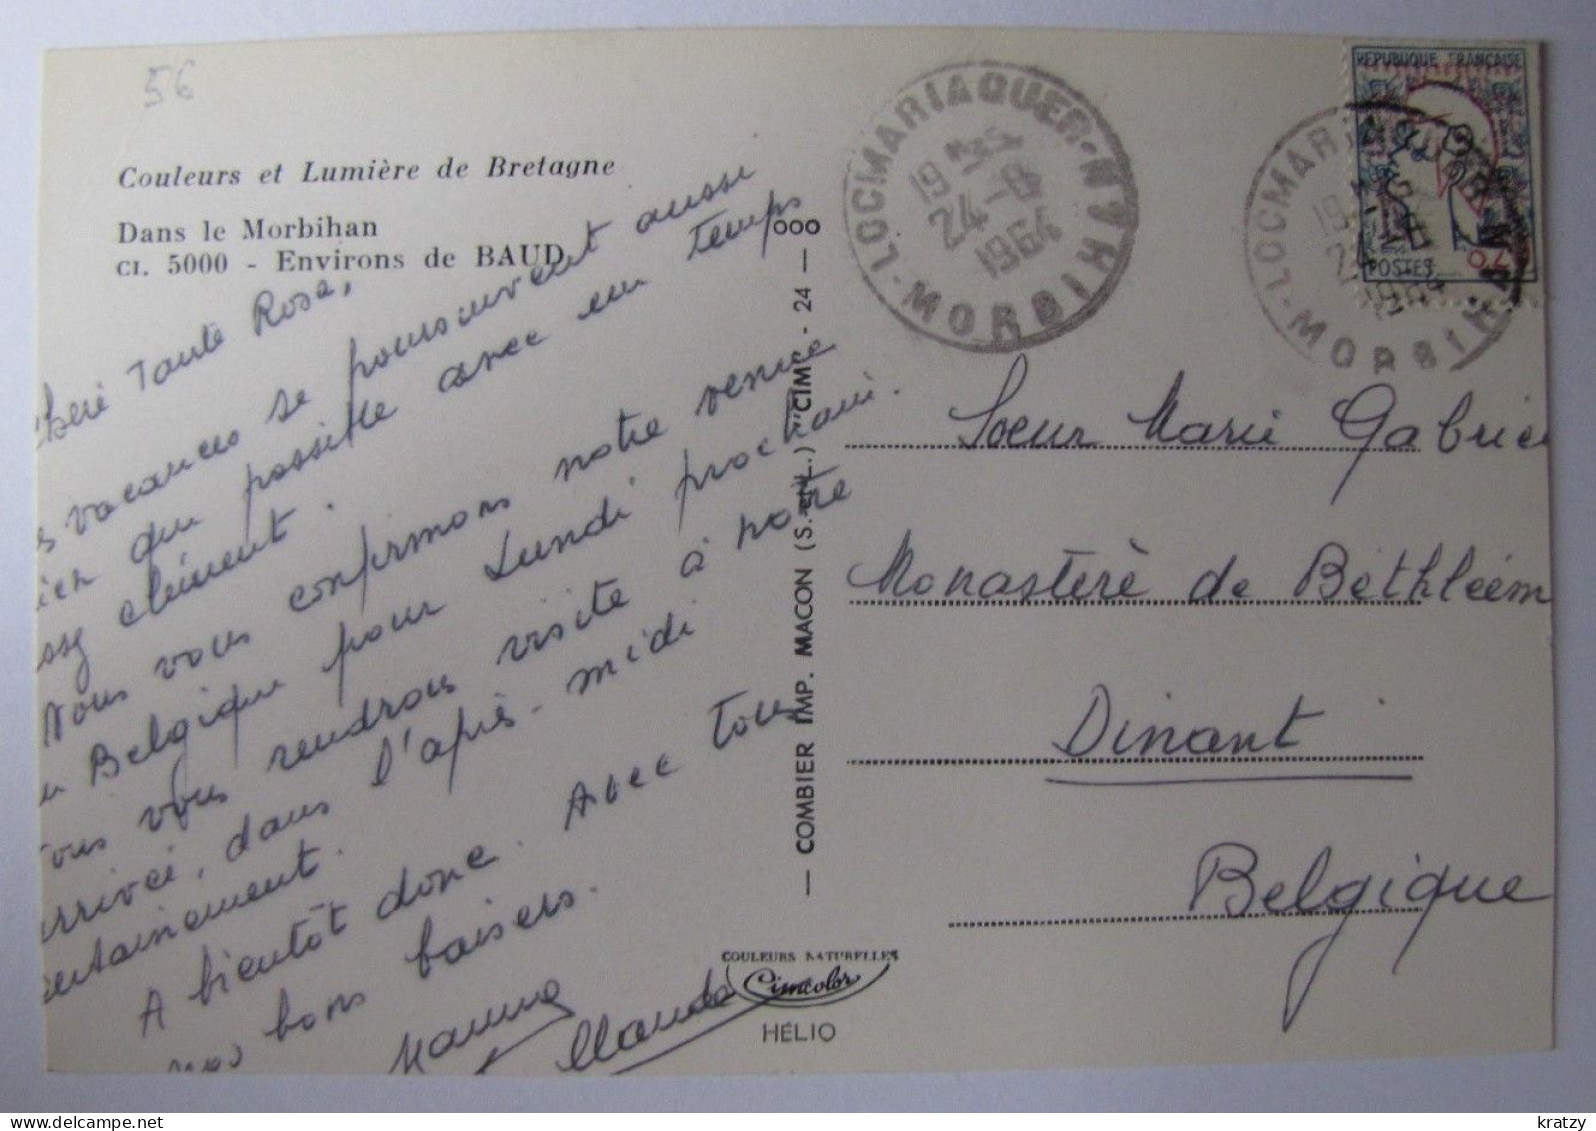 56
Couleurs et Lumière de Bretagne
Dans le Morbihan
CI. 5000 - Environs de BAUD
Tante Rosa,
vacances se poursuivent aussi
que possible avec un temps
clément.
Nous vous confirmons notre venue
Belgique pour Lundi prochain.
vous rendrons visite à notre
arrivée, dans l'après-midi
certainement.
A bientôt donc. Avec tous
nos bons baisers.
— COMBIER IMP. MACON (S.-et-L.) "CIM" - 24 —
OOO
COULEURS NATURELLES
Cimcolor
HÉLIO
LOCMARIAQUER
19 H
24-8
1964
MORBIHAN
LOCMARIAQUER
MORBIHAN
REPUBLIQUE FRANÇAISE
POSTES
0,20
Soeur Marie Gabriel
Monastère de Bethléem
Dinant
Belgique
kratzy